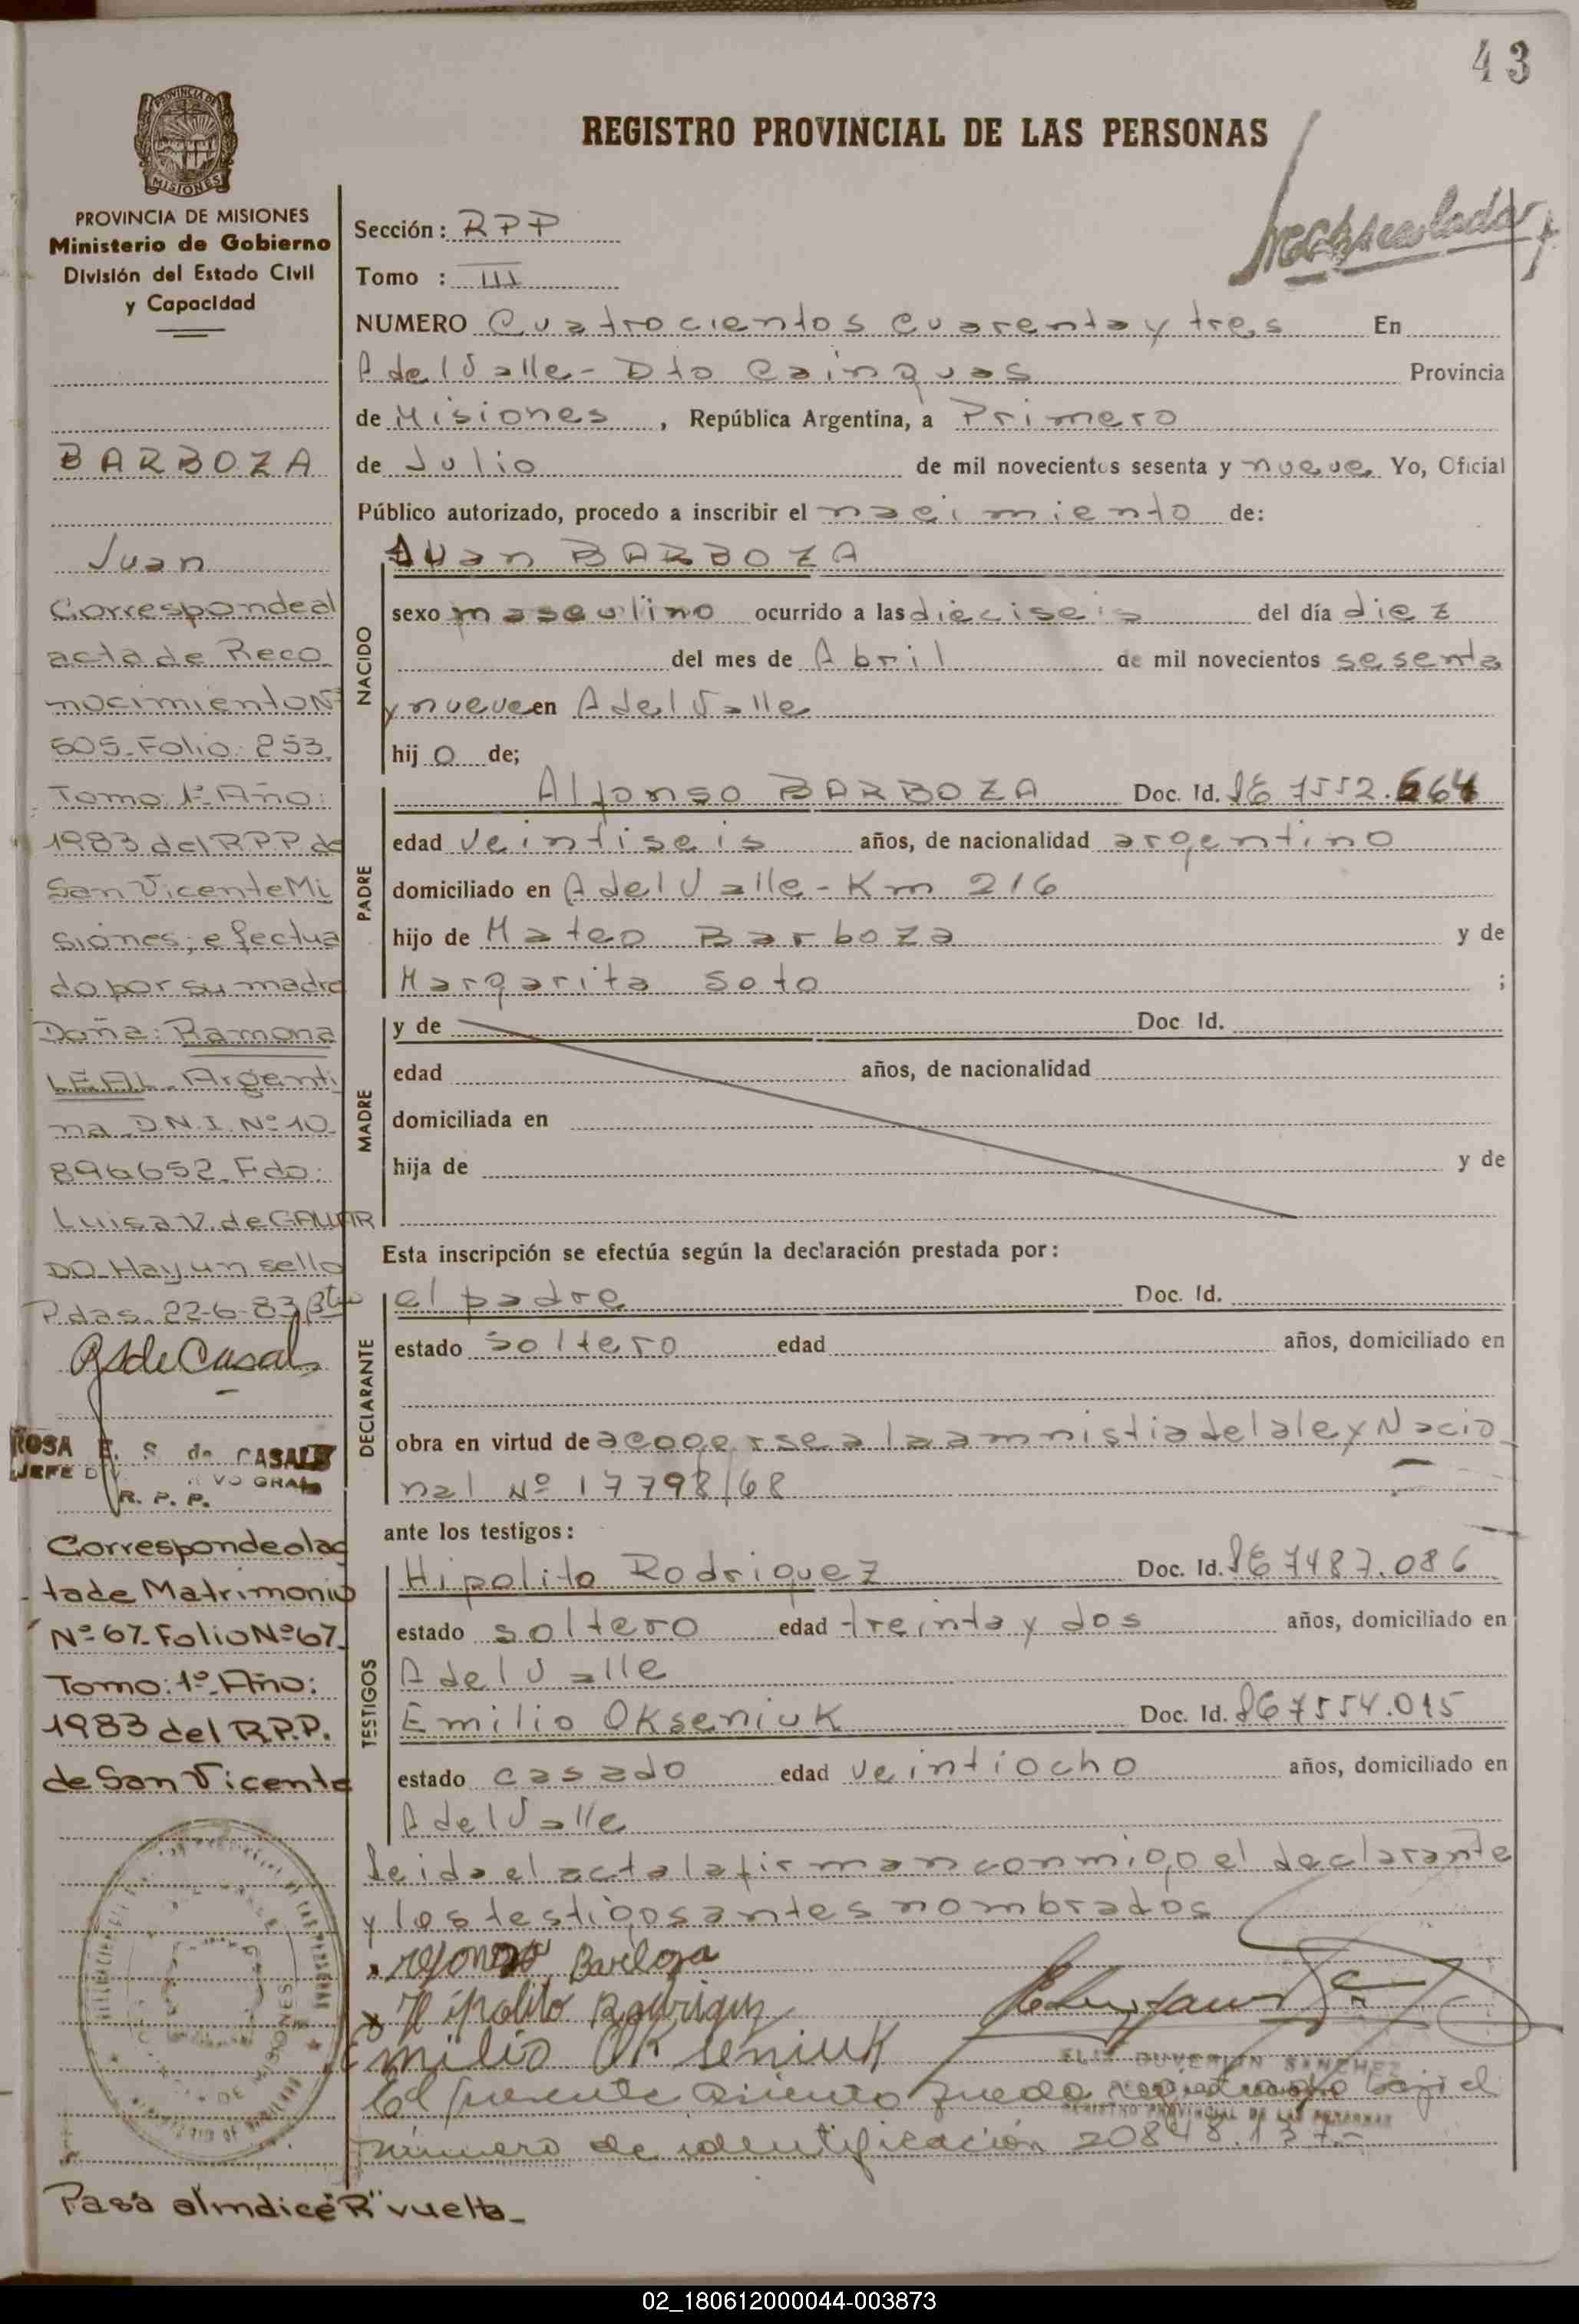 43
REGISTRO PROVINCIAL DE LAS PERSONAS
PROVINCIA DE MISIONES
Ministerio de Gobierno
División del Estado Civil
y Capacidad
BARBOZA
Juan
Corresponde al
acta de Reco
nocimiento Nº
505. Folio: 253
Tomo: 1º Año:
1983 del RPP de
San Vicente Mi
siones; efectua
do por su madre
Doña: Ramona
LEAL. Argenti
na D.N.I. Nº 10.
896652. Fdo:
Luisa V. de GALLAR
DO. Hay un sello
Pdas. 22-6-83
ROSA E. S. de CASALS
JEFE
R. P. P.
Corresponde al ac
ta de Matrimonio
Nº 67. Folio Nº 67.
Tomo: 1º. Año:
1983 del R.P.P.
de San Vicente
Pasa al indice "R" vuelta
Sección: RPP
Tomo : III
NUMERO Cuatrocientos cuarenta y tres En
A del Valle - Dto Cainguas Provincia
de Misiones, República Argentina, a Primero
de Julio de mil novecientos sesenta y nueve Yo, Oficial
Público autorizado, procedo a inscribir el nacimiento de:
Juan BARBOZA
NACIDO
sexo masculino ocurrido a las dieciseis del día diez
del mes de Abril de mil novecientos sesenta
y nueve en A del Valle
hijo de;
PADRE
Alfonso BARBOZA Doc. Id. 7552.664
edad veintiseis años, de nacionalidad argentino
domiciliado en A del Valle - Km 216
hijo de Mateo Barboza y de
Margarita Soto ;
MADRE
y de Doc Id.
edad años, de nacionalidad
domiciliada en
hija de y de
Esta inscripción se efectúa según la declaración prestada por:
DECLARANTE
el padre Doc. Id.
estado soltero edad años, domiciliado en
obra en virtud de acogerse a la amnistia de la ley Nacio
nal Nº 17798/68
ante los testigos:
TESTIGOS
Hipolito Rodriguez Doc. Id. 7487.086
estado soltero edad treinta y dos años, domiciliado en
A del Valle
Emilio Okseniuk Doc. Id. 7554.015
estado casado edad veintiocho años, domiciliado en
A del Valle
Leida el acta la firman conmigo el declarante
y los testigos antes nombrados
Barboza
Hipolito
Emilio Okseniuk
SANCHEZ
REGISTRO PROVINCIAL DE LAS PERSONAS
El presente asiento queda bajo el
número de identificación 20848.137.-
02_180612000044-003873